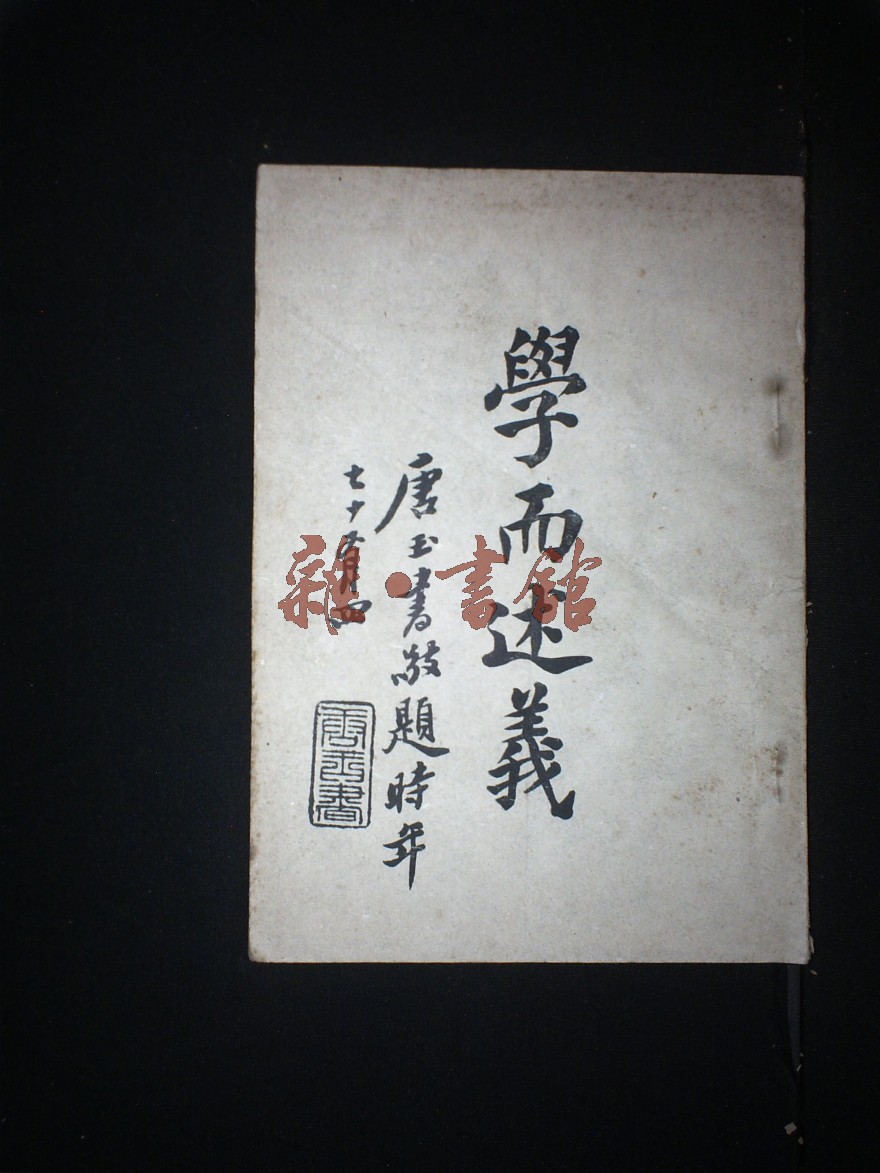 學而述義
唐玉書敬題時年
七十有四
唐玉書
雜·書館